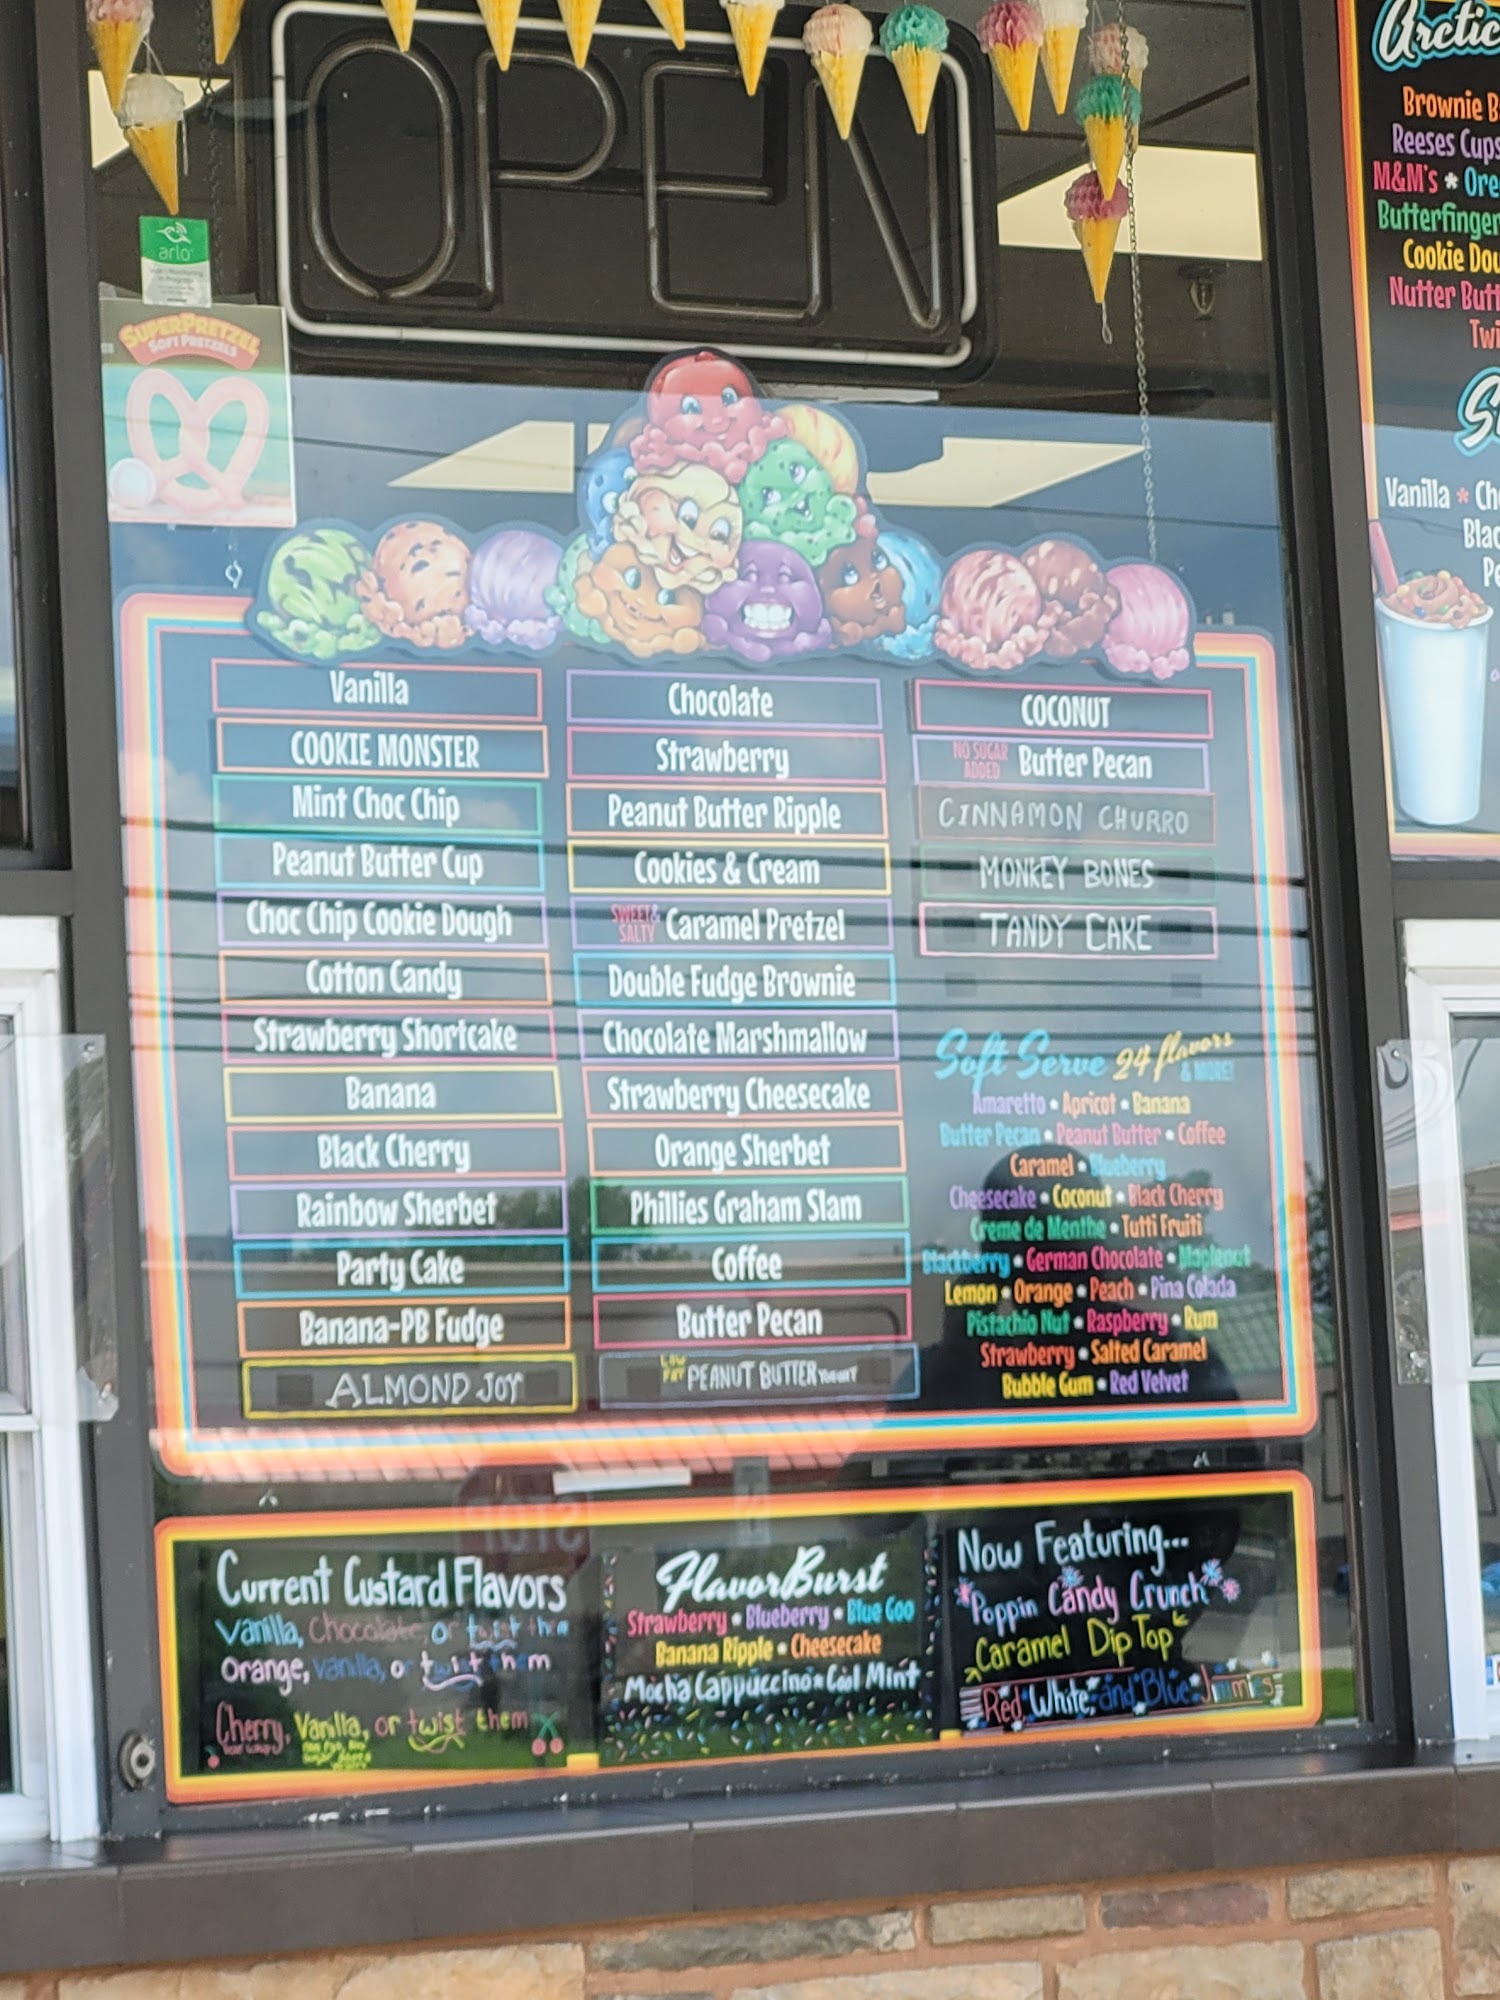 OPEN
arlo
SUPERPRETZEL
SOFT PRETZELS
Vanilla
COOKIE MONSTER
Mint Choc Chip
Peanut Butter Cup
Choc Chip Cookie Dough
Cotton Candy
Strawberry Shortcake
Banana
Black Cherry
Rainbow Sherbet
Party Cake
Banana-PB Fudge
ALMOND JOY
Chocolate
Strawberry
Peanut Butter Ripple
Cookies & Cream
SWEET & SALTY Caramel Pretzel
Double Fudge Brownie
Chocolate Marshmallow
Strawberry Cheesecake
Orange Sherbet
Phillies Graham Slam
Coffee
Butter Pecan
LOW FAT PEANUT BUTTER YOGURT
COCONUT
NO SUGAR ADDED Butter Pecan
CINNAMON CHURRO
MONKEY BONES
TANDY CAKE
Soft Serve 24 flavors & MORE!
Amaretto • Apricot • Banana
Butter Pecan • Peanut Butter • Coffee
Caramel • Blueberry
Cheesecake • Coconut • Black Cherry
Creme de Menthe • Tutti Fruiti
Blackberry • German Chocolate • Maplenut
Lemon • Orange • Peach • Pina Colada
Pistachio Nut • Raspberry • Rum
Strawberry • Salted Caramel
Bubble Gum • Red Velvet
Current Custard Flavors
Vanilla, Chocolate, or twist them
Orange, vanilla, or twist them
Cherry, Vanilla, or twist them
FlavorBurst
Strawberry • Blueberry • Blue Goo
Banana Ripple • Cheesecake
Mocha Cappuccino • Cool Mint
Now Featuring...
Poppin Candy Crunch
Caramel Dip Top
Red, White, and Blue Jimmies
Arctic
Brownie B
Reeses Cups
M&M's * Ore
Butterfinger
Cookie Dou
Nutter Butt
Twi
S
Vanilla * Ch
Blac
Pe